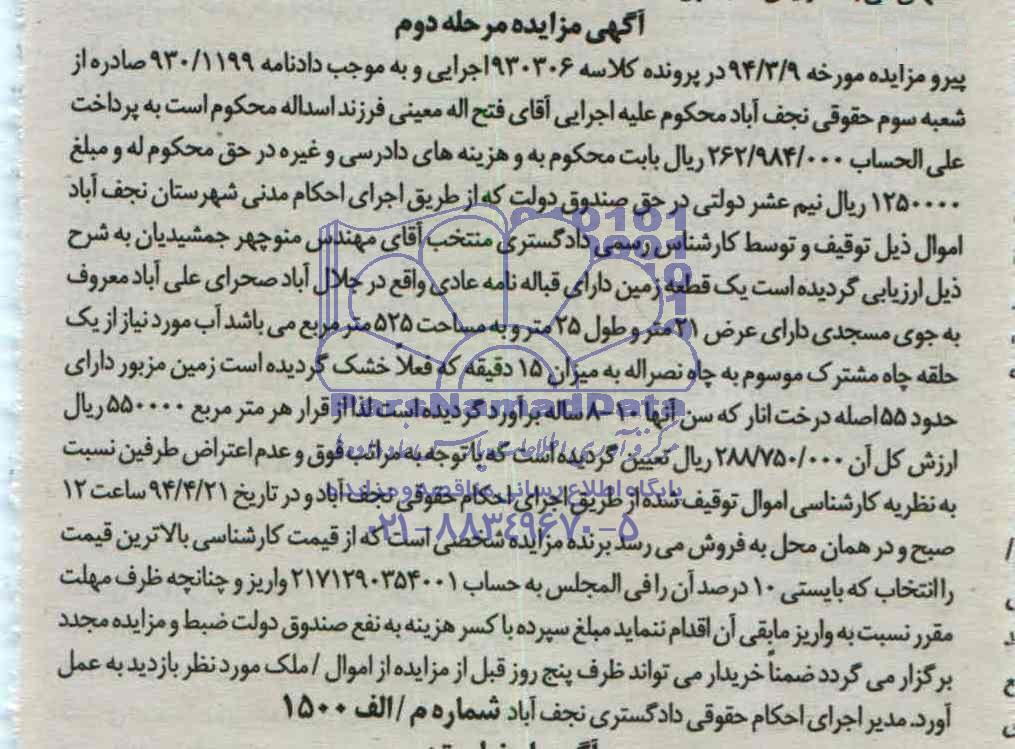 آگهی مزایده مرحله دوم
پیرو مزایده مورخه ۹۴/۳/۹ در پرونده کلاسه ۹۳۰۳۰۶ اجرایی و به موجب دادنامه ۹۳۰/۱۱۹۹ صادره از
شعبه سوم حقوقی نجف آباد محکوم علیه اجرایی آقای فتح اله معینی فرزند اسداله محکوم است به پرداخت
علی الحساب ۲۶۲/۹۸۴/۰۰۰ ریال بابت محکوم به و هزینه های دادرسی و غیره در حق محکوم له و مبلغ
۱۲۵۰۰۰۰ ریال نیم عشر دولتی در حق صندوق دولت که از طریق اجرای احکام مدنی شهرستان نجف آباد
اموال ذیل توقیف و توسط کارشناس رسمی دادگستری منتخب آقای مهندس منوچهر جمشیدیان به شرح
ذیل ارزیابی گردیده است یک قطعه زمین دارای قباله نامه عادی واقع در جلال آباد صحرای علی آباد معروف
به جوی مسجدی دارای عرض ۲۱ متر و طول ۲۵ متر و به مساحت ۵۲۵ متر مربع می باشد آب مورد نیاز از یک
حلقه چاه مشترک موسوم به چاه نصراله به میزان ۱۵ دقیقه که فعلاً خشک گردیده است زمین مزبور دارای
حدود ۵۵ اصله درخت انار که سن آنها ۱۰-۸ ساله برآورد گردیده است لذا از قرار هر متر مربع ۵۵۰۰۰۰ ریال
ارزش کل آن ۲۸۸/۷۵۰/۰۰۰ ریال تعیین گردیده است که با توجه به مراتب فوق و عدم اعتراض طرفین نسبت
به نظریه کارشناسی اموال توقیف شده از طریق اجرای احکام حقوقی نجف آباد و در تاریخ ۹۴/۴/۲۱ ساعت ۱۲
صبح و در همان محل به فروش می رسد برنده مزایده شخصی است که از قیمت کارشناسی بالاترین قیمت
را انتخاب که بایستی ۱۰ درصد آن را فی المجلس به حساب ۲۱۷۱۲۹۰۳۵۴۰۰۱ واریز و چنانچه ظرف مهلت
مقرر نسبت به واریز مابقی آن اقدام ننماید مبلغ سپرده با کسر هزینه به نفع صندوق دولت ضبط و مزایده مجدد
برگزار می گردد ضمناً خریدار می تواند ظرف پنج روز قبل از مزایده از اموال / ملک مورد نظر بازدید به عمل
آورد. مدیر اجرای احکام حقوقی دادگستری نجف آباد شماره م / الف ۱۵۰۰
ParsNamadData
پایگاه اطلاع رسانی مناقصه و مزایده
۰۲۱-۸۸۳۴۹۶۷۰-۵